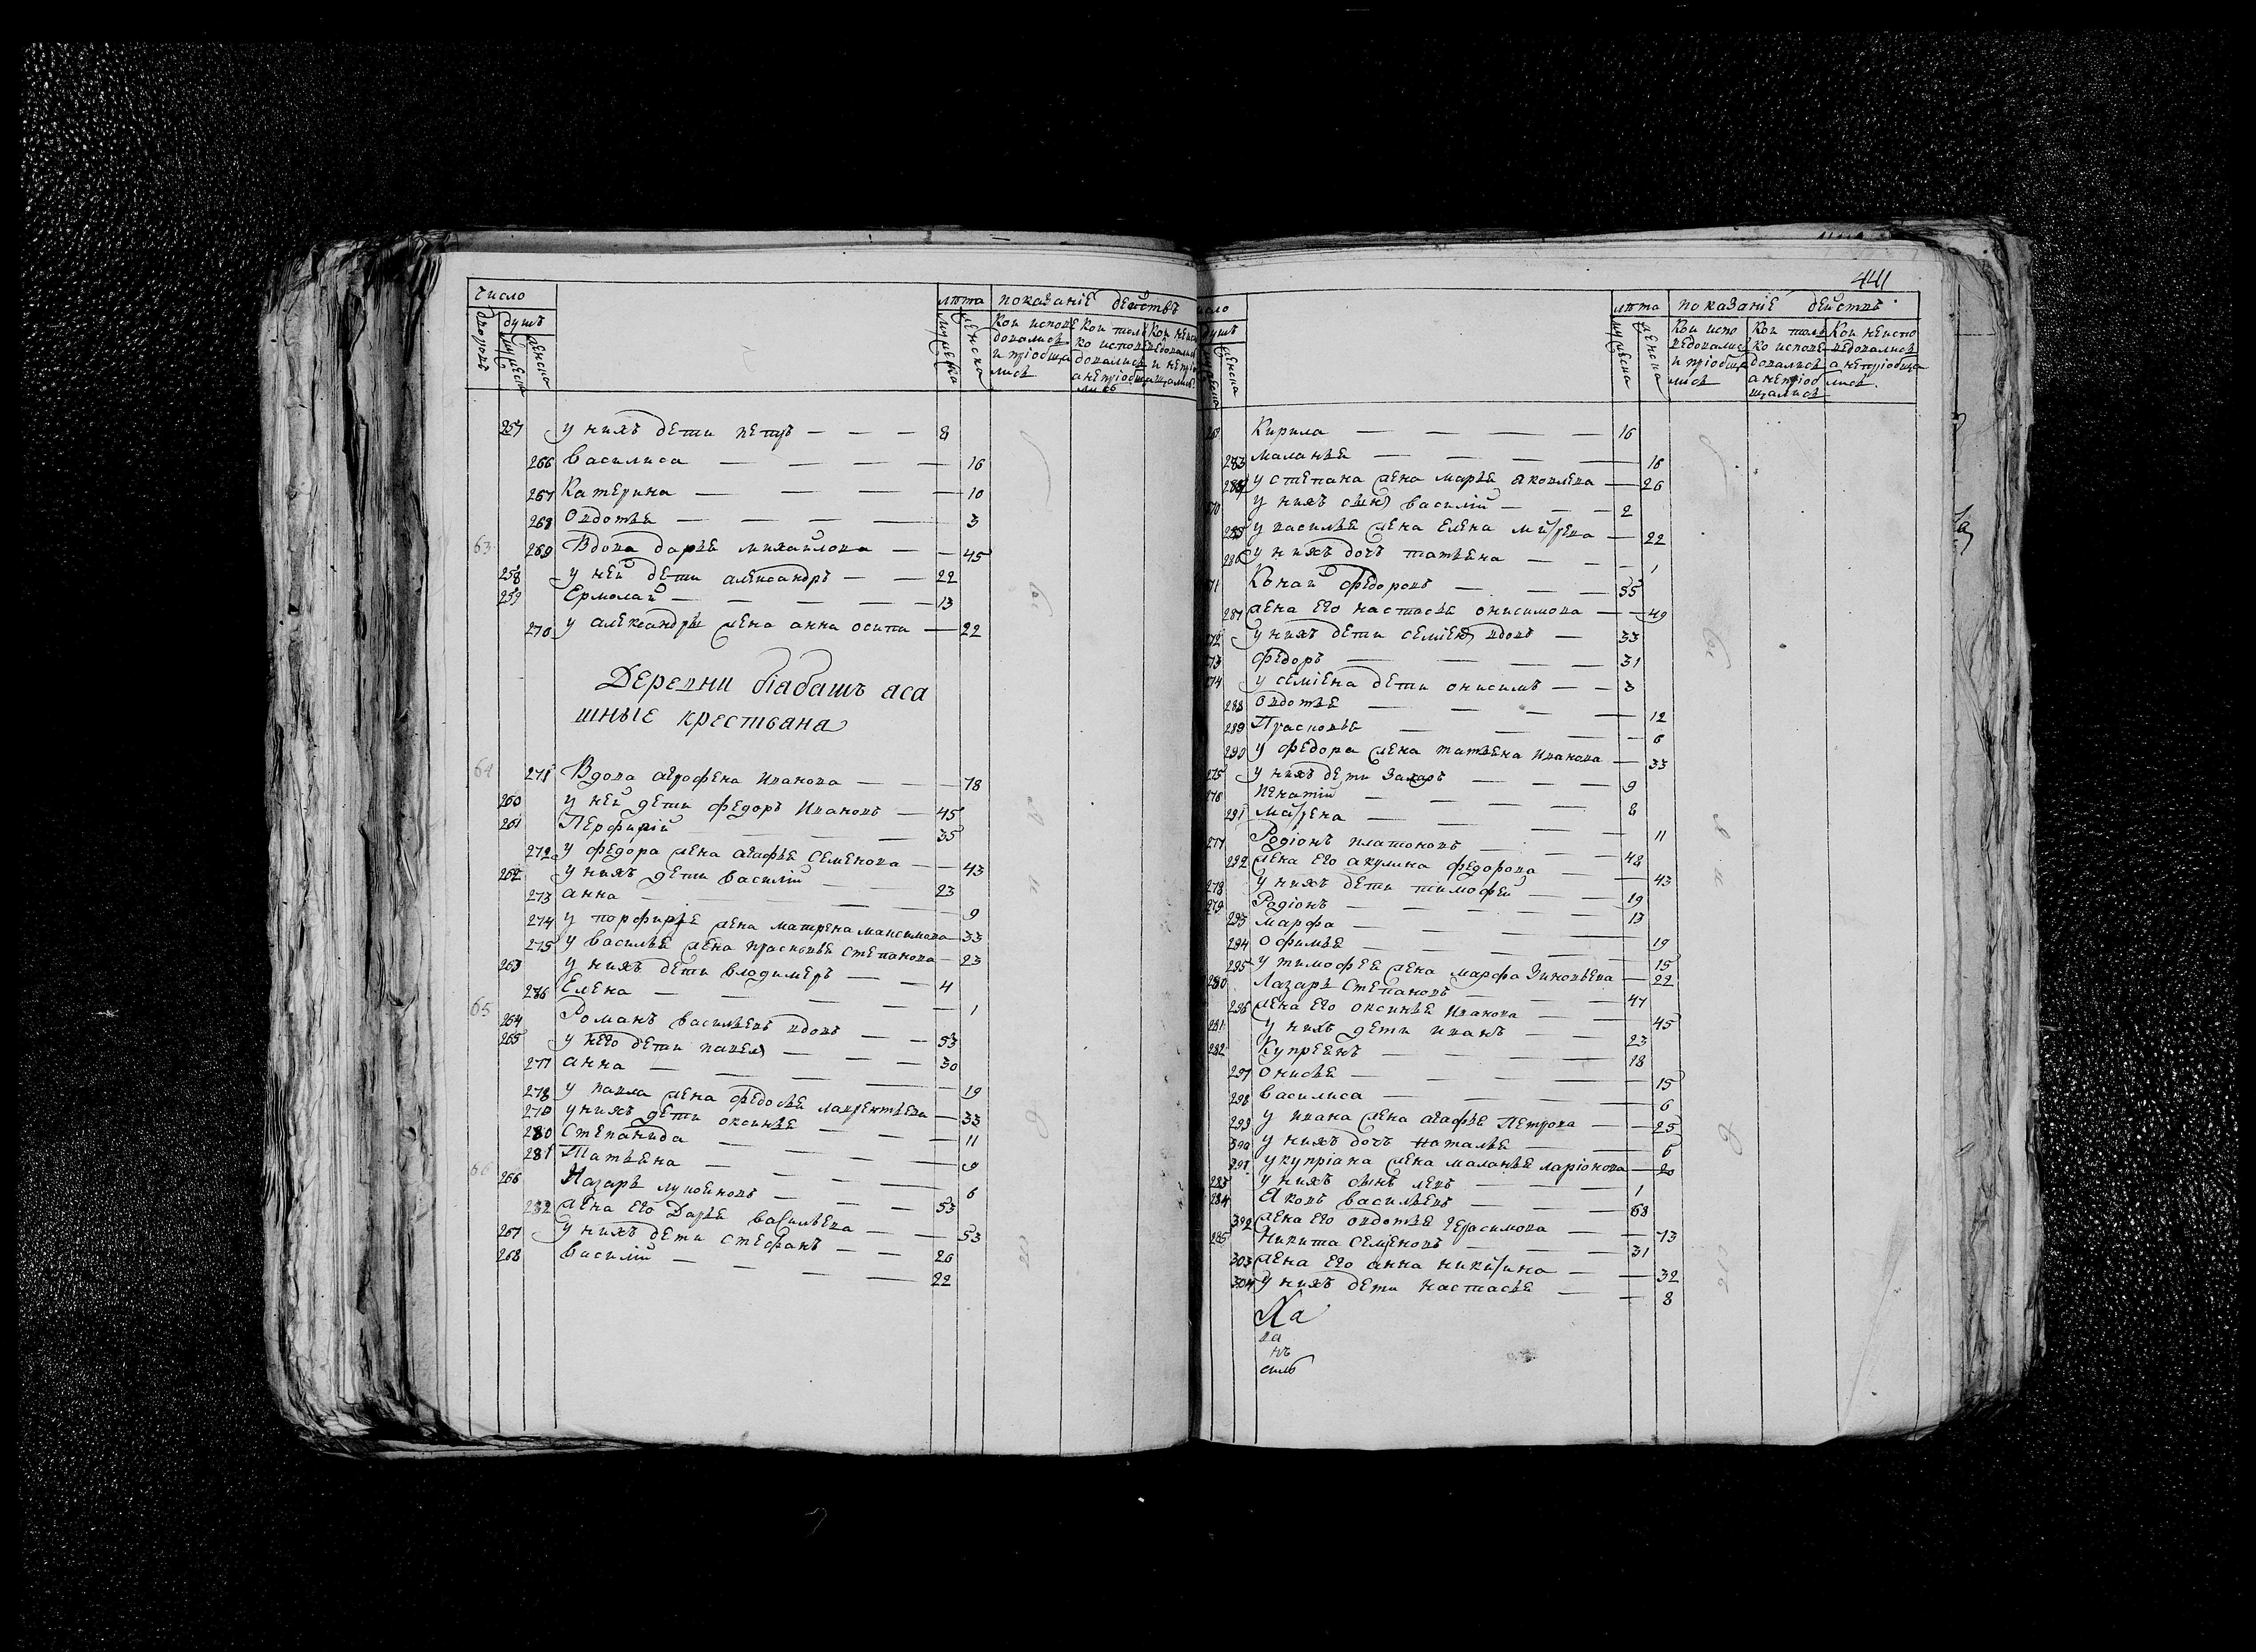 число
дворовъ
душъ
мужеска
женска
лѣта
мужеска
женска
показанiе действъ
Кои испове
довалися
и прiобща
лися
Кои толь
ко испове
довались
а непрiобща
лись
257 у нихъ дети петръ — — — 8
266 василиса — — — — 16
267 Катерина — — — — 10
268 Овдотья — — — — 3
63 269 Вдова дарья михаилова — — 45
258 у ней дети александръ — — 22
259 Ермолай — — — — 13
270 у александры жена анна осипи — 22
Деревни бiабашъ яса
шные крестьяна
64 271 Вдова агрофена Иванова — — 78
260 у ней дети федоръ Ивановъ — 45
261 Перфирiй — — — 35
272 у федора жена агафья Семенова — — 43
262 у нихъ дети василiй — — 23
273 анна — — — — 9
274 у порфирье жена матрена максимова — 33
275 у василья жена прасковья степанова — 23
263 у нихъ дети владимеръ — — 4
286 Елена — — — — 1
65 264 Романъ васильевъ вдовъ — — 53
265 у него дети павелъ — — — 30
277 анна — — — — 19
278 у павла жена федосья лаврентьева — 33
279 у нихъ дети оксинья — — — 11
280 Степанида — — — — 9
281 Татьяна — — — — 6
66 266 Назаръ лукоеновъ — — — 53
282 жена его Дарья васильева — — 53
267 у нихъ дети стефанъ — — 26
268 василiй — — — — 22
441
число
душъ
женска
лѣта
мужеска
женска
показанiе действъ
Кои испо
ведовалис
и прiобща
лися
Кои толь
ко испове
довались
а непрiоб
щались
Кои неиспо
ведовались
а непрiобща
лись
Кирила — — — — 16
283 маланья — — — — 16
284 у степана жена марья яковлева — 26
у нихъ сынъ василiй — — — 2
285 у василья жена елена — 22
286 у нихъ дочь татьяна — — — 1
Конай федоровъ — — — 55
287 жена его настасья онисимова — — 49
272 у нихъ дети семiенъ вдовъ — 33
273 федоръ — — — — 31
274 у семiена дети онисимъ — — 3
288 Овдотья — — — — 12
289 Прасковья — — — — 6
290 у федора жена татьяна Иванова — 33
275 у нихъ дети Захаръ — — — 9
276 — — — — 8
291 — — — — 11
277 Родiонъ платоновъ — — — 48
292 жена его акулина федорова — — 43
278 у нихъ дети тимофей — — 19
279 Родiонъ — — — — 13
293 марфа — — — — 19
294 офимья — — — — 15
295 у тимофея жена марфа Зиновьева — 22
280 Лазарь Степановъ — — — 47
296 жена его оксинья Иванова — — 45
281 у нихъ дети иванъ — — 23
282 Купреянъ — — — 18
297 онисья — — — — 15
298 василиса — — — — 6
299 у ивана жена агафья Петрова — — 25
300 у нихъ дочь наталья — — 6
291 у купрiана жена маланья ларiонова — 20
283 у нихъ сынъ левъ — — — 1
284 Яковъ васильевъ — — — 68
302 жена его овдотья герасимова — — 73
285 Никита Семеновъ — — — 31
303 жена его анна — — 32
304 у нихъ дети настасья — — 8